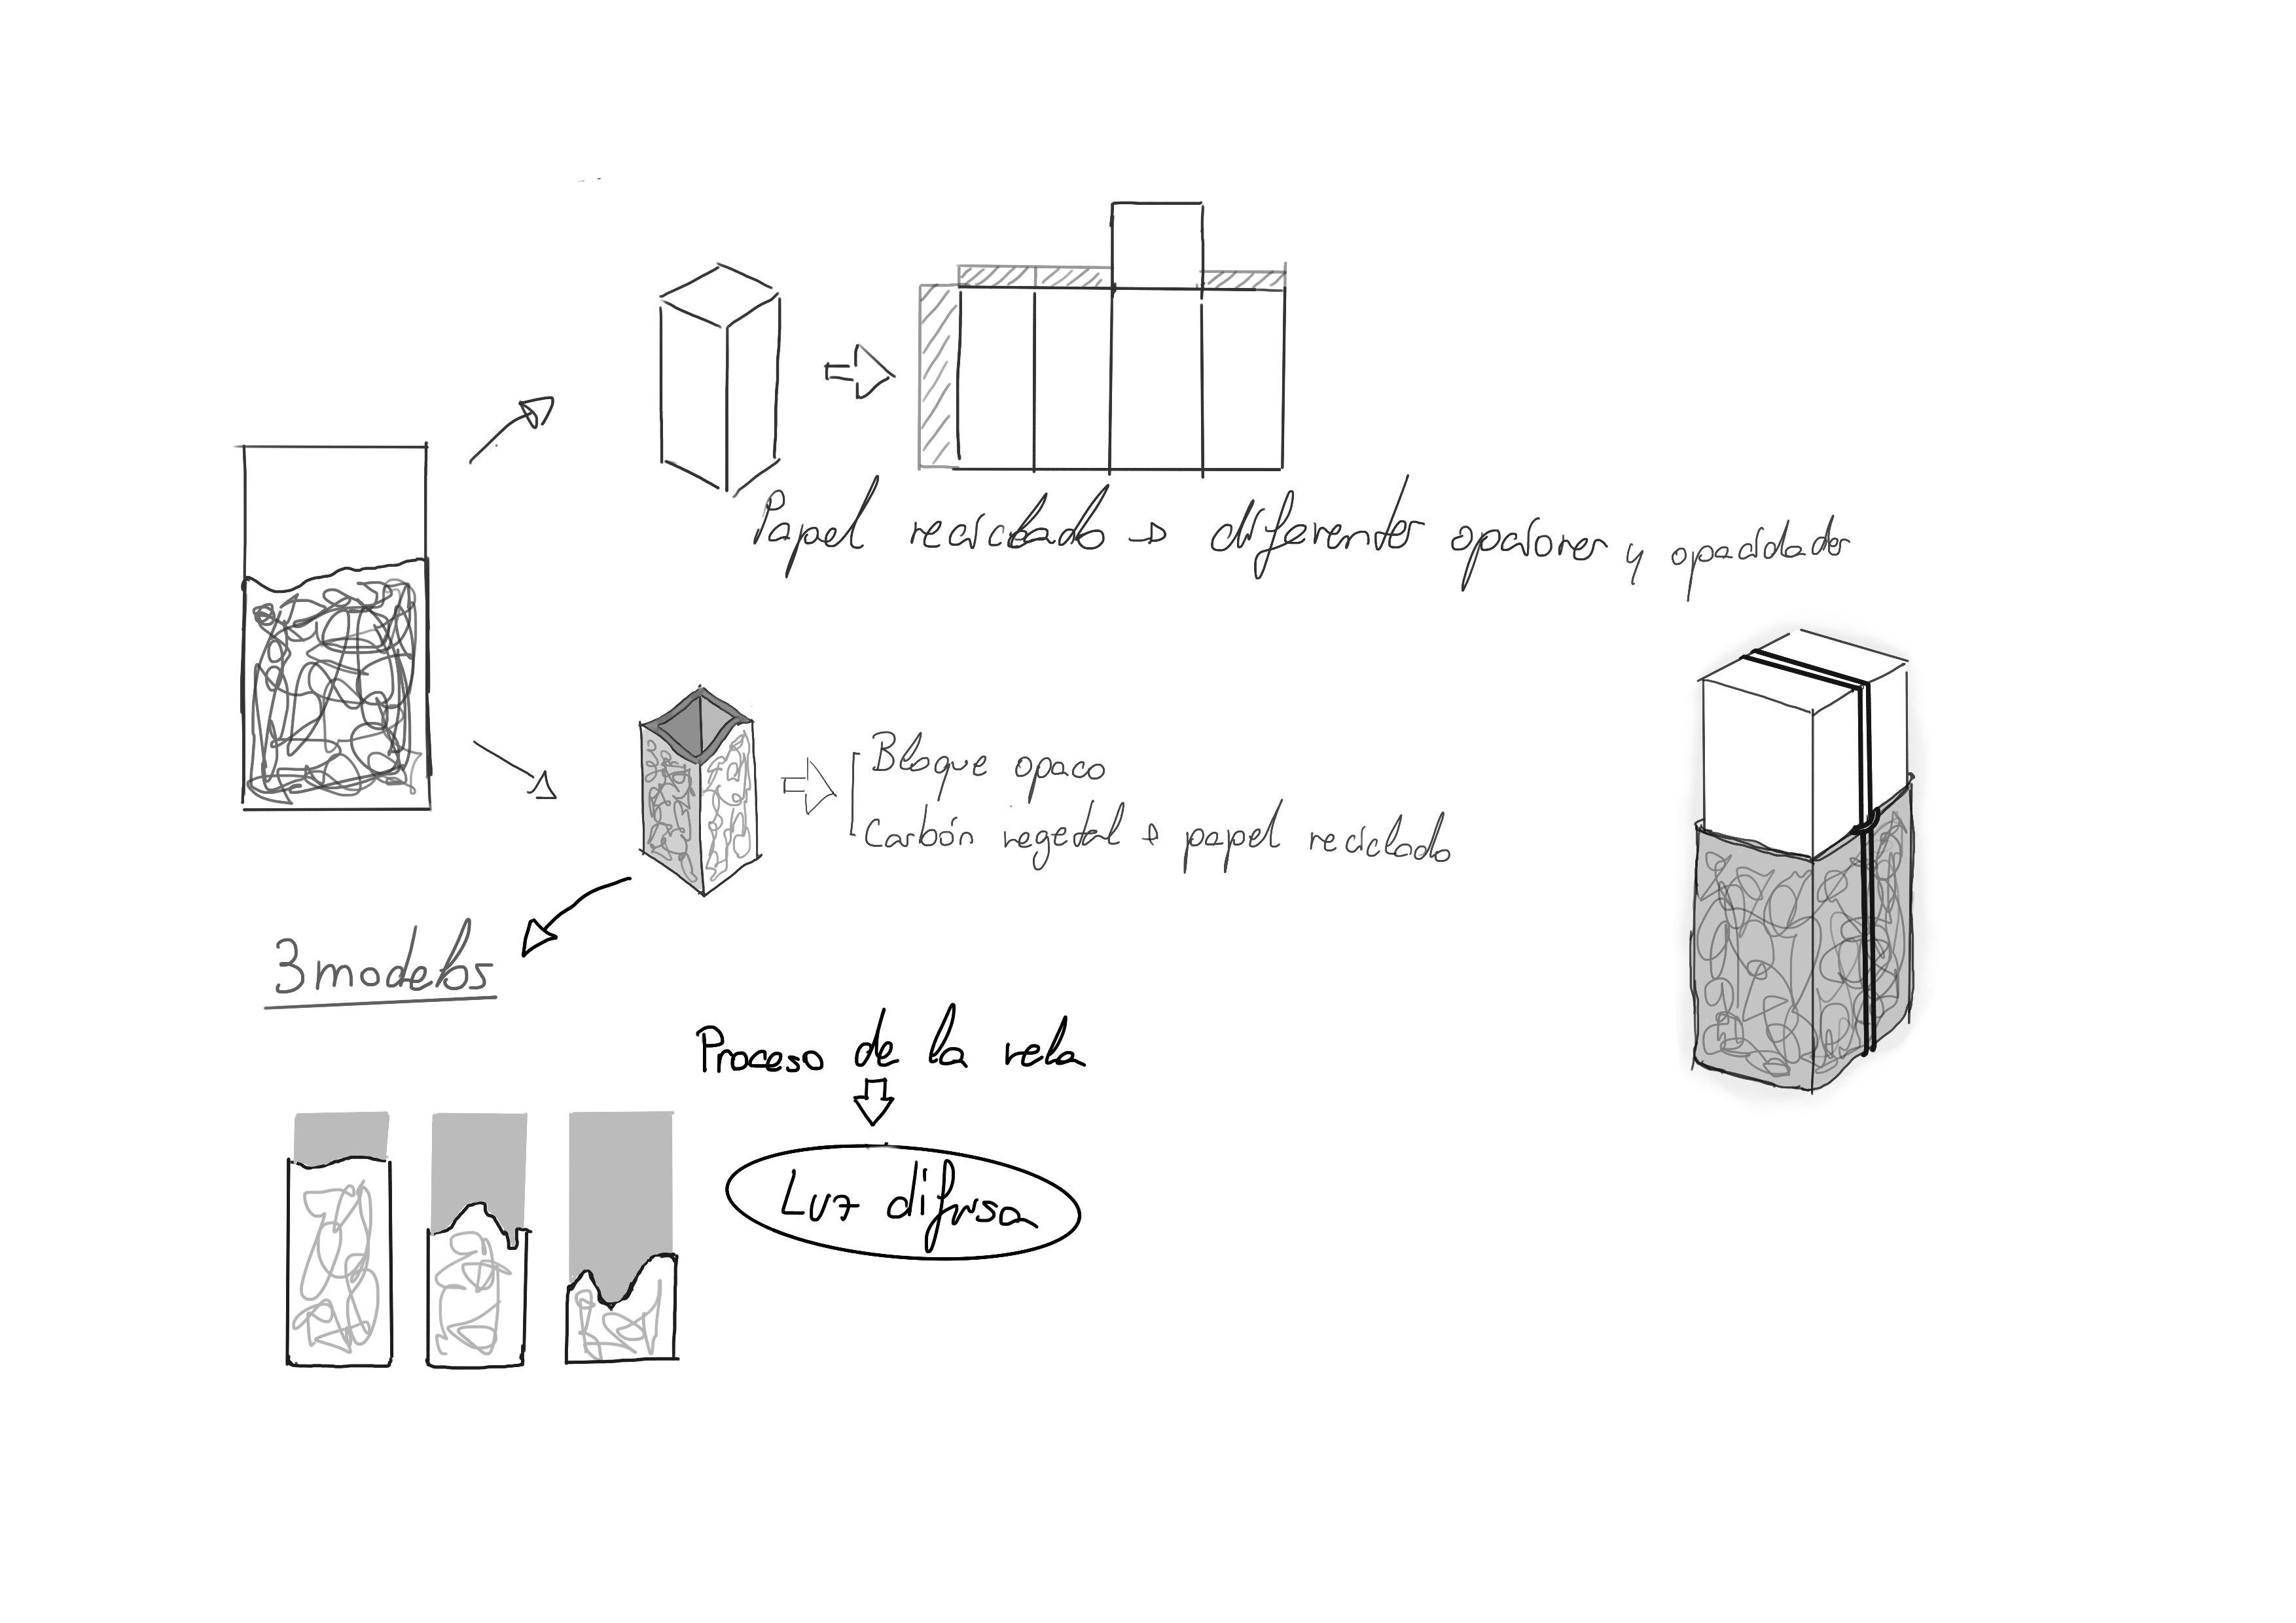 Papel reciclado → diferentes opciones y opacidades
Bloque opaco
Carbón vegetal + papel reciclado
3 modelos
Proceso de la vela
Luz difusa